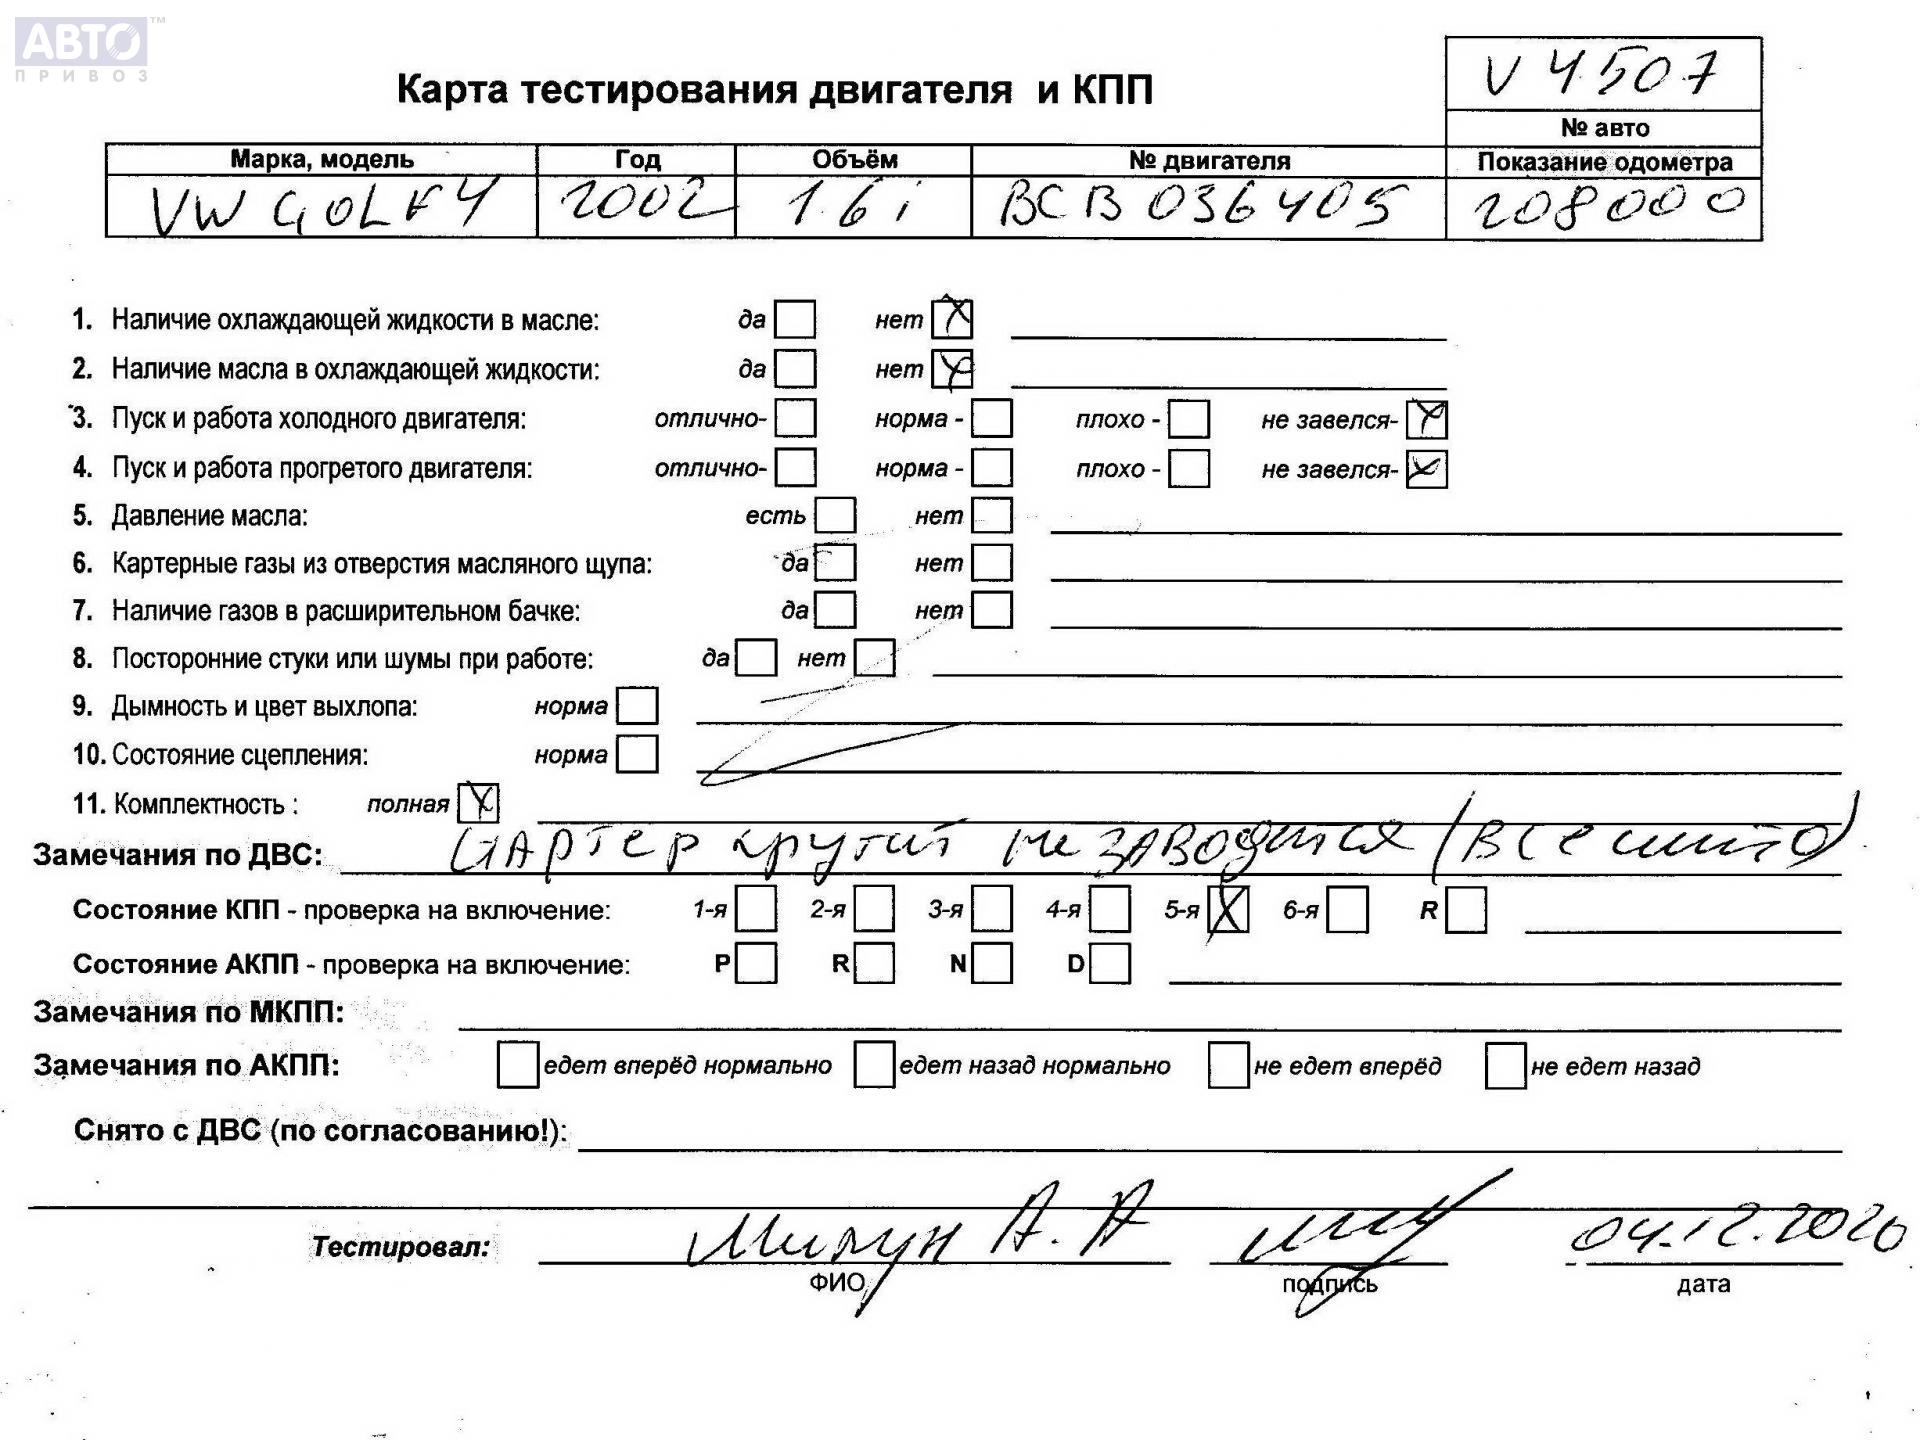 АВТО™
ПРИВОЗ
Карта тестирования двигателя и КПП
V4507
№ авто
Марка, модель Год Объём № двигателя Показание одометра
VW GOLF 4 2002 1.6i BCB036405 208000
1. Наличие охлаждающей жидкости в масле: да нет
2. Наличие масла в охлаждающей жидкости: да нет
3. Пуск и работа холодного двигателя: отлично- норма - плохо - не завелся-
4. Пуск и работа прогретого двигателя: отлично- норма - плохо - не завелся-
5. Давление масла: есть нет
6. Картерные газы из отверстия масляного щупа: да нет
7. Наличие газов в расширительном бачке: да нет
8. Посторонние стуки или шумы при работе: да нет
9. Дымность и цвет выхлопа: норма
10. Состояние сцепления: норма
11. Комплектность : полная
Замечания по ДВС: стартер крутит не заводится (все
Состояние КПП - проверка на включение: 1-я 2-я 3-я 4-я 5-я 6-я R
Состояние АКПП - проверка на включение: P R N D
Замечания по МКПП:
Замечания по АКПП: едет вперёд нормально едет назад нормально не едет вперёд не едет назад
Снято с ДВС (по согласованию!):
Тестировал: А.А 04.12.2020
ФИО подпись дата